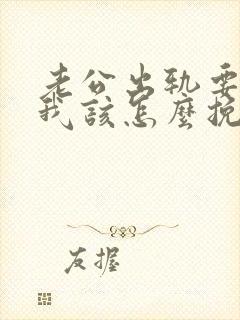 老公出轨要
我該怎麼挽
友握